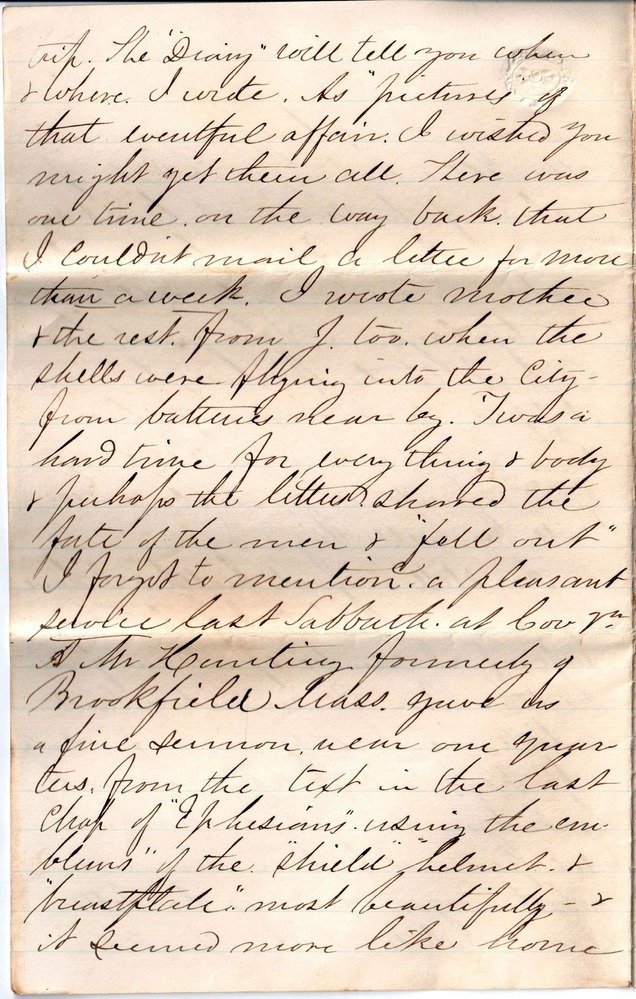 trip. The "Diary" will tell you when
& where. I wrote. As "pictures" of
that eventful affair. I wished you
might get them all. There was
one time. on the way back. that
I couldn't mail a letter for more
than a week. I wrote mother
& the rest. from J. too. when the
shells were flying into the City -
from batteries near by. 'Twas a
hard time for every thing & body
& perhaps the letters. shared the
fate of the men & "fell out"
I forgot to mention. a pleasant
service last Sabbath. at
A Mr Hunting formerly of
Brookfield Mass. gave us
a fine sermon, near our quar-
ters. from the text in the last
Chap of "Ephesians". using the em-
blems" of the. "shield" "helmet. &
"breastplate". most beautifully - &
it seemed more like home